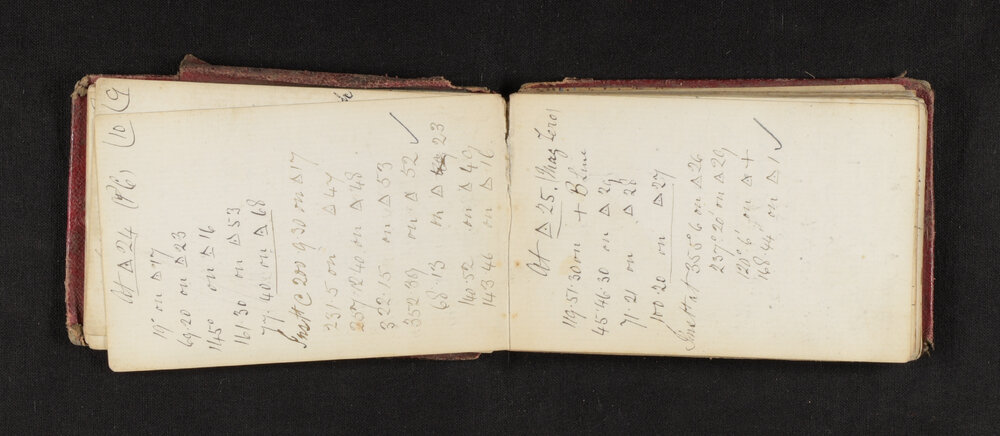 10 (9
At △ 24 (96)
19° on △ 17
69·20 on △ 23
145° on △ 16
161·30 on △ 53
77·40 on △ 68
Inst C 200° 9'30 on △ 17
231·5 on △ 47
257·12·40 on △ 48
322·15 on △ 53
352·39 on △ 52 ✓
68·13 on △ 23
140·52 on △ 49
143·46 on △ 16
At △ 25. (Mag Zero)
119·51·30 on + B Line
45·46·30 on △ 29
71·21 on △ 28
100·20 on △ 27
Inst at 355°6 on △ 26
237°20' on △ 29
120°6' on △ +
168·44 on △ 1 ✓